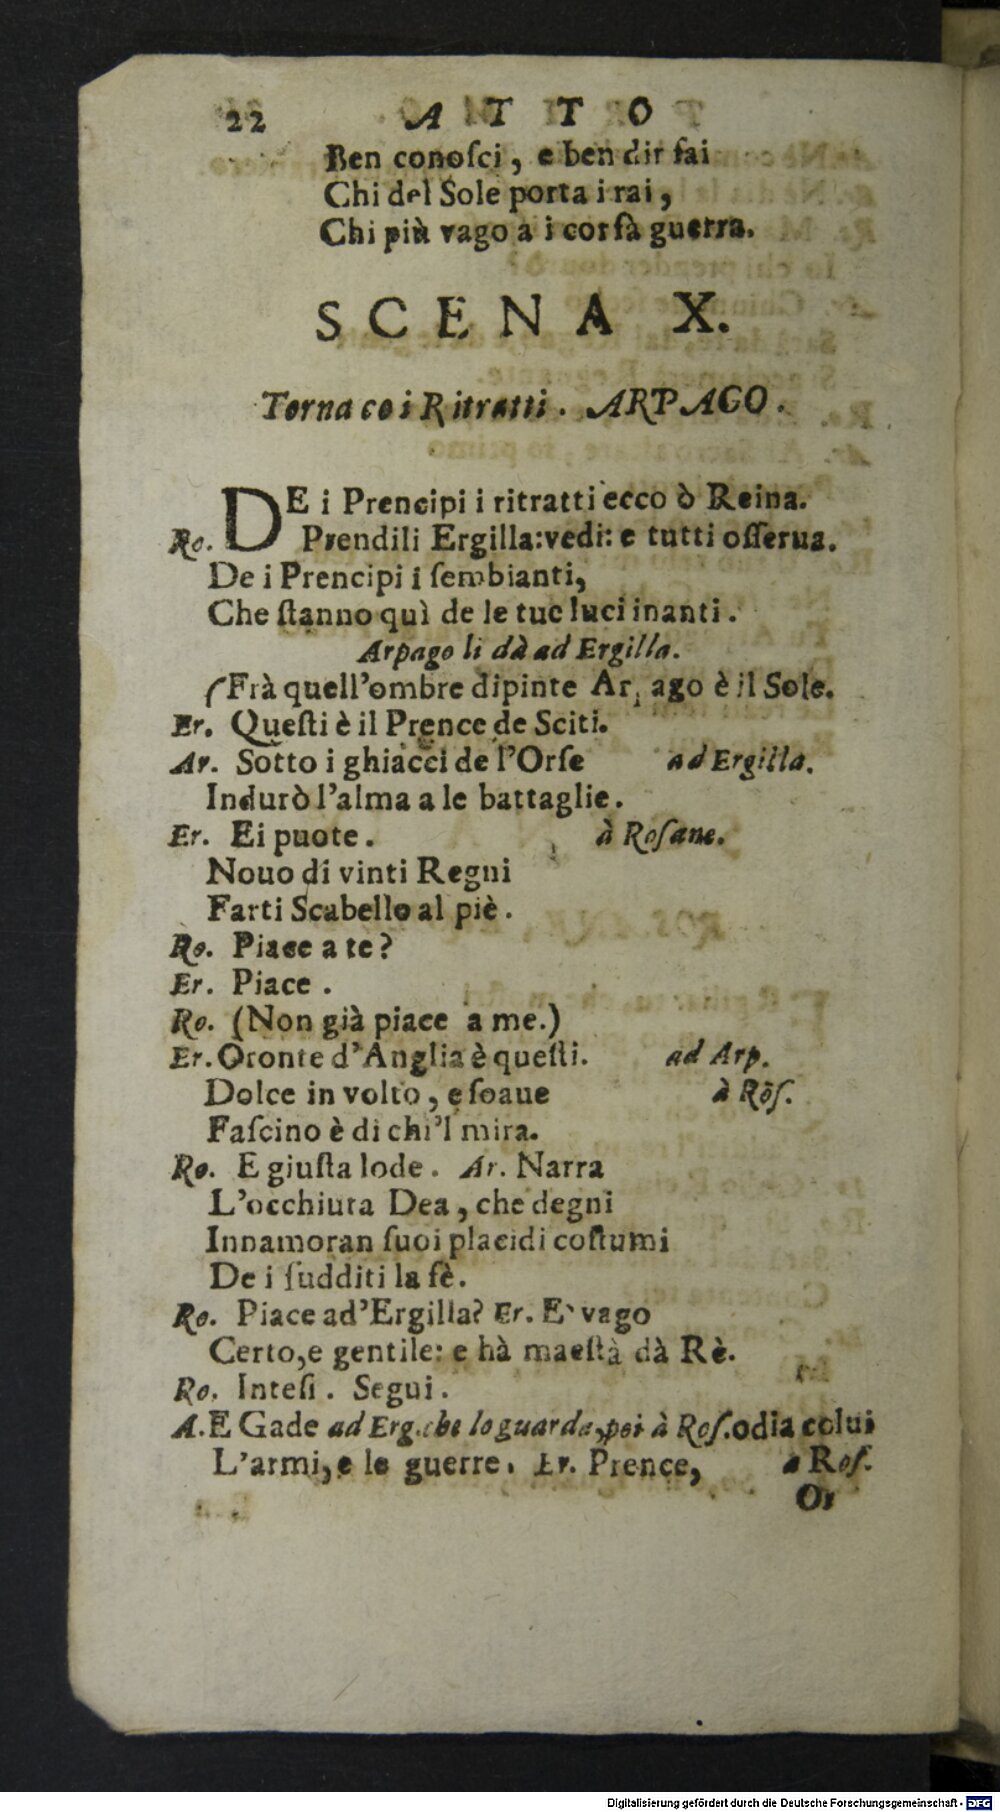 22 ATTO
Ben conoſci, e ben dir fai
Chi del Sole porta i rai,
Chi più vago a i cor fà guerra.
SCENA X.
Torna co i Ritratti. ARPAGO.
DE i Prencipi i ritratti ecco ò Reina.
Ro. Prendili Ergilla: vedi: e tutti oſſerua.
De i Prencipi i ſembianti,
Che ſtanno quì de le tue luci inanti.
Arpago li dà ad Ergilla.
(Frà quell'ombre dipinte Ar ago è il Sole.
Er. Queſti è il Prence de Sciti.
Ar. Sotto i ghiacci de l'Orſe ad Ergilla.
Indurò l'alma a le battaglie.
Er. Ei puote. à Roſane.
Nouo di vinti Regni
Farti Scabello al piè.
Ro. Piace a te?
Er. Piace.
Ro. (Non già piace a me.)
Er. Oronte d'Anglia è queſti. ad Arp.
Dolce in volto, e ſoaue à Roſ.
Faſcino è di chi'l mira.
Ro. E giuſta lode. Ar. Narra
L'occhiuta Dea, che degni
Innamoran ſuoi placidi coſtumi
De i ſudditi la fè.
Ro. Piace ad'Ergilla? Er. E` vago
Certo, e gentile: e hà maeſtà dà Rè.
Ro. Inteſi. Segui.
A. E Gade ad Erg. che lo guarda, poi à Roſ. odia colui
L'armi, e le guerre. Er. Prence, a Roſ.
Or
Digitalisierung gefördert durch die Deutsche Forschungsgemeinschaft - DFG